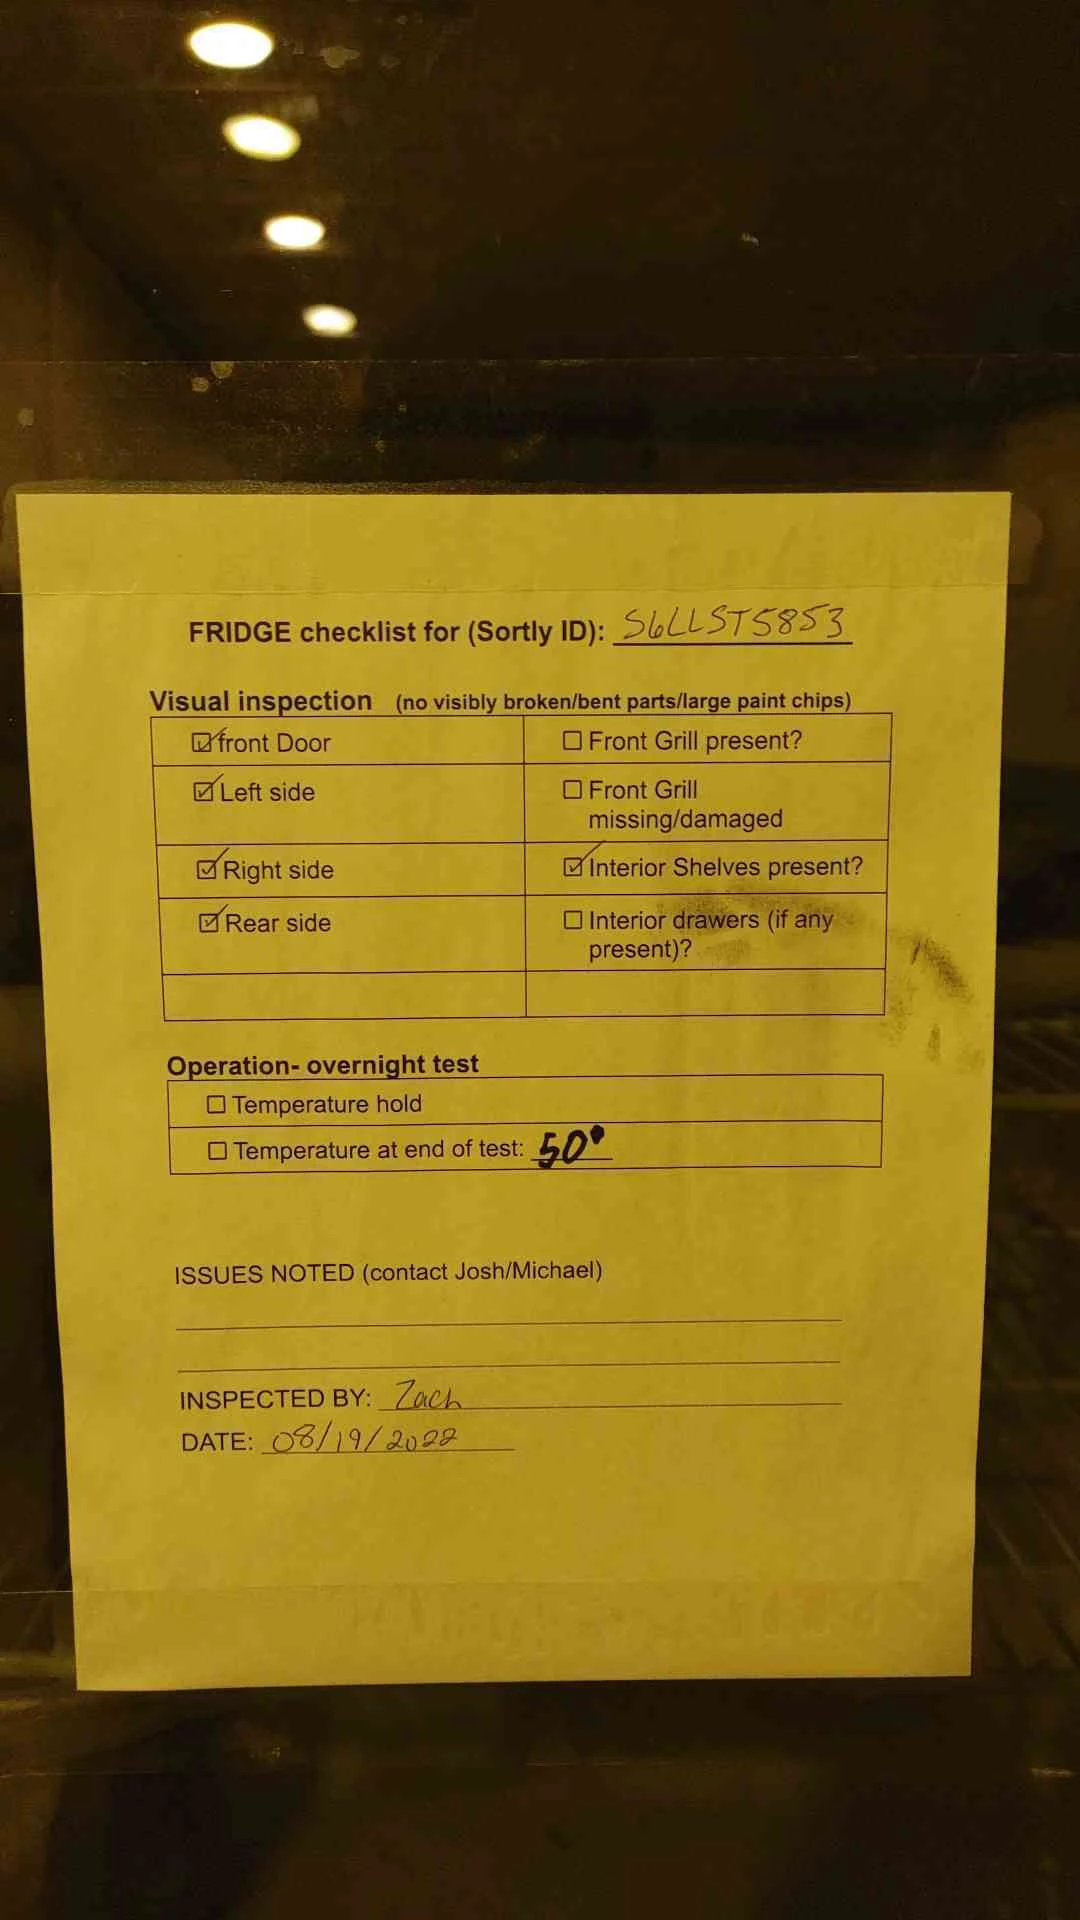 FRIDGE checklist for (Sortly ID): S6LLST5853
Visual inspection (no visibly broken/bent parts/large paint chips)
☑ front Door ☐ Front Grill present?
☑ Left side ☐ Front Grill
missing/damaged
☑ Right side ☑ Interior Shelves present?
☑ Rear side ☐ Interior drawers (if any
present)?
Operation- overnight test
☐ Temperature hold
☐ Temperature at end of test: 50°
ISSUES NOTED (contact Josh/Michael)
INSPECTED BY: Zach
DATE: 08/19/2022